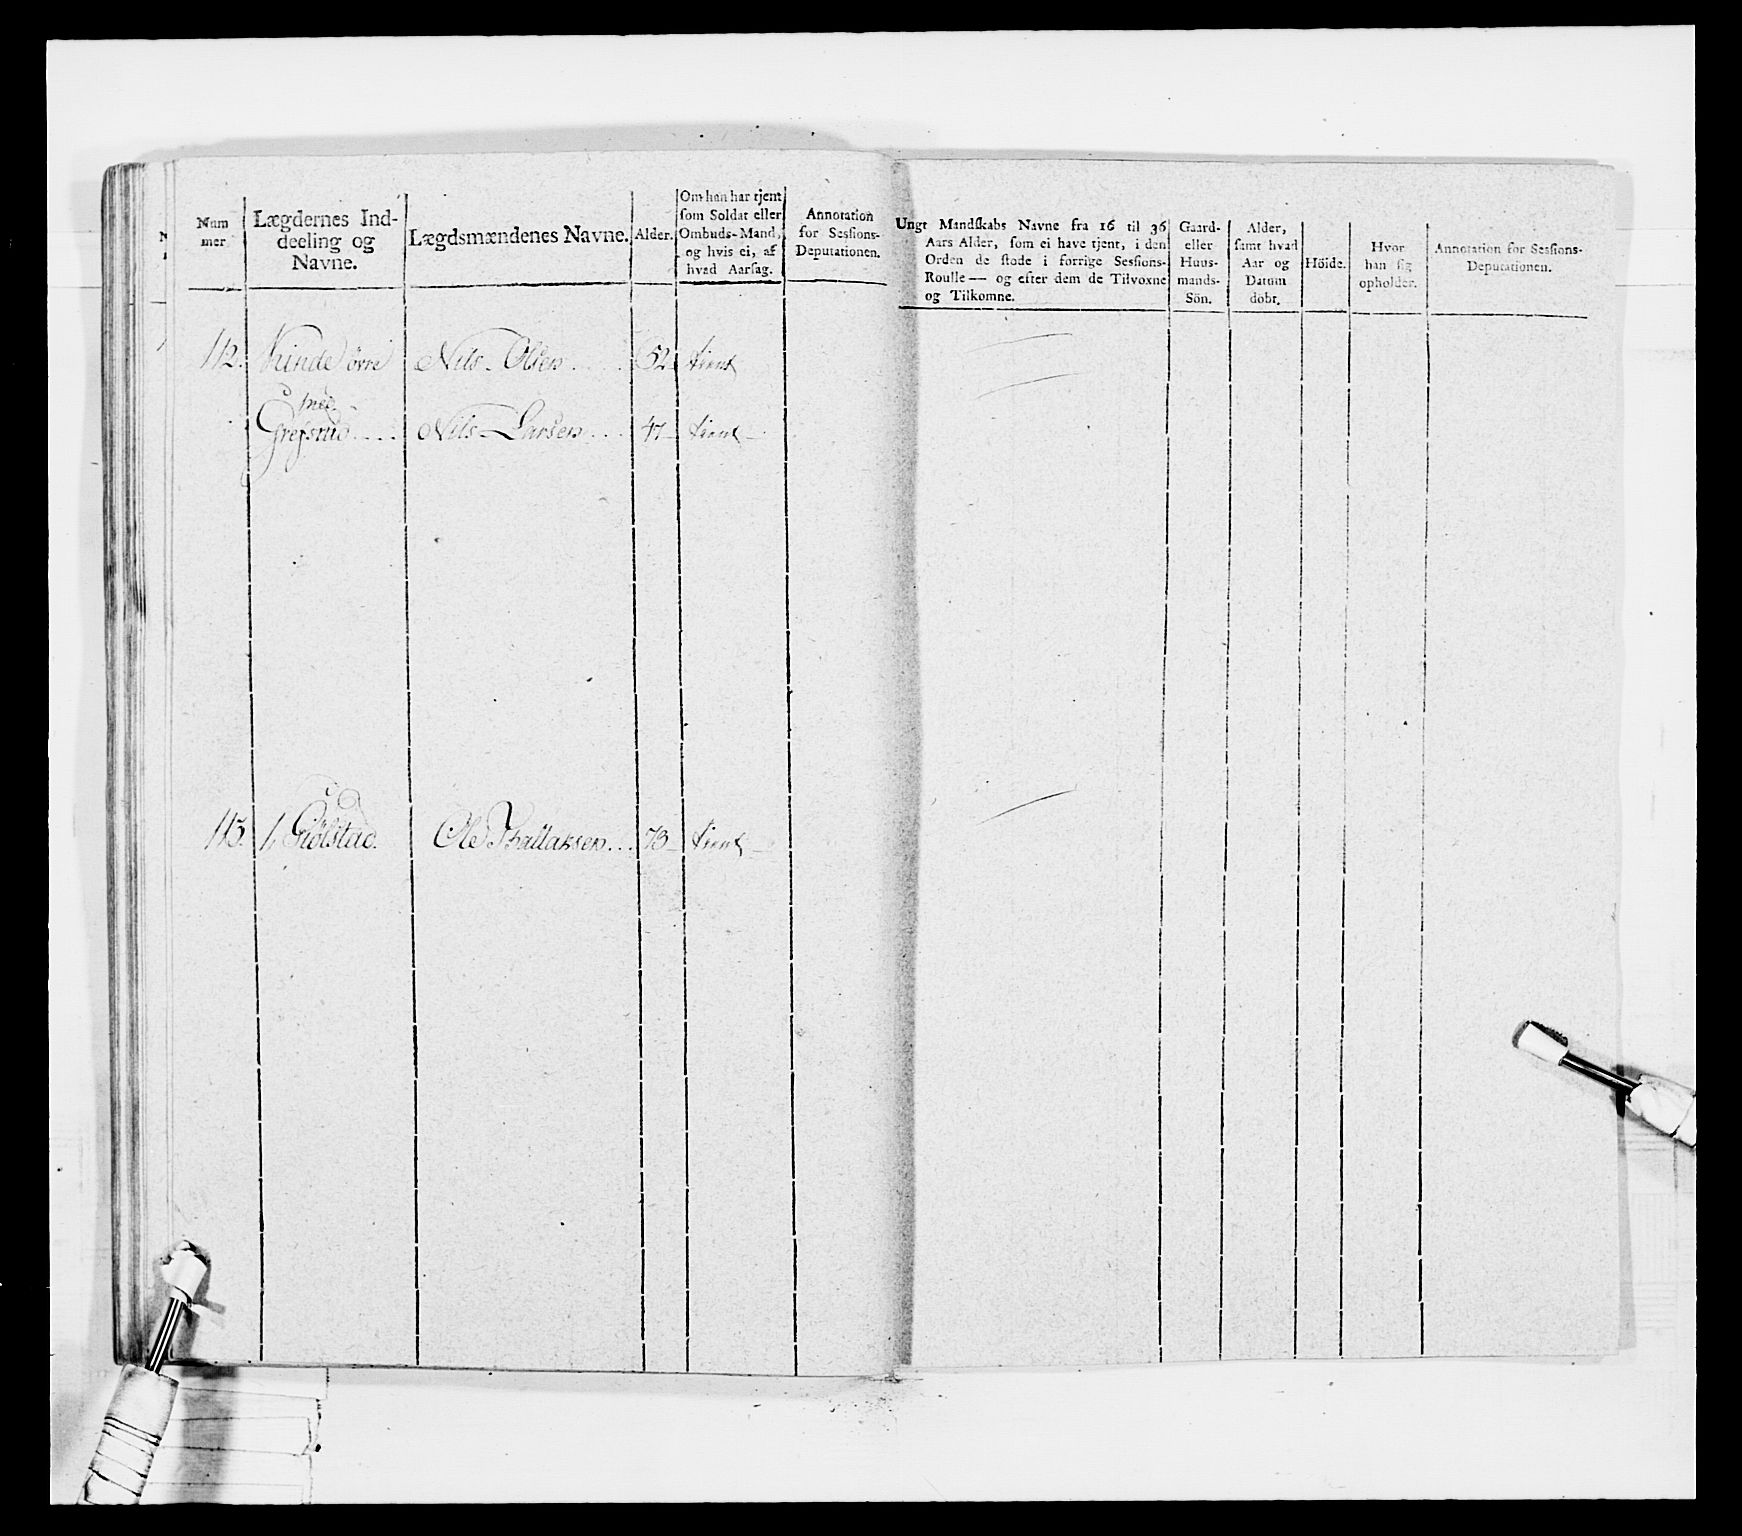 Num
mer
Lægdernes Ind-
deeling og
Navne.
Lægdsmændenes Navne.
Alder.
Om han har tjent
som Soldat eller
Ombuds-Mand,
og hvis ei, af
hvad Aarsag.
Annotation
for Sessions-
Deputationen.
Ungt Mandskabs Navne fra 16 til 36
Aars Alder, som ei have tjent, i den
Orden de stode i forrige Sessions-
Roulle — og efter dem de Tilvoxne
og Tilkomne.
Gaard-
eller
Huus-
mands-
Sön.
Alder,
samt hvad
Aar og
Datum
döbt.
Höide.
Hvor
han sig
opholder.
Annotation for Sessions-
Deputationen.
112. Kinde övre Nils Olsen 52 tient
med
Grefsrud Nils Larsen 47 tient
113. 1, Giölstad. Ole Thallaksen 73 tient